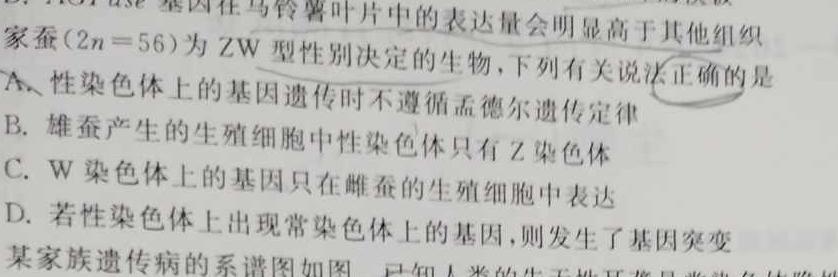 基因在马铃薯叶片中的表达量会明显高于其他组织
家蚕(2n=56)为 ZW 型性别决定的生物,下列有关说法正确的是
A、性染色体上的基因遗传时不遵循孟德尔遗传定律
B. 雄蚕产生的生殖细胞中性染色体只有 Z 染色体
C. W 染色体上的基因只在雌蚕的生殖细胞中表达
D. 若性染色体上出现常染色体上的基因,则发生了基因突变
某家族遗传病的系谱图如图